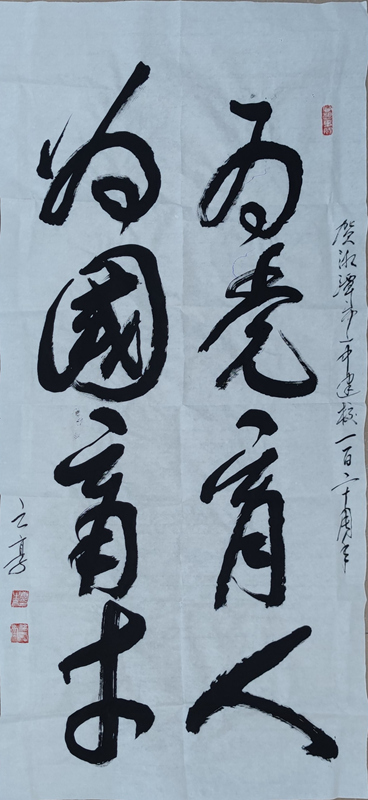 贺湘潭市一中建校一百二十周年
为党育人
为国育才